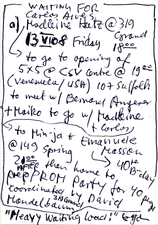 WAITING FOR
Carlos Alves
a) Madleine Hatz @ 319
Grand
13 VI 08 Friday 18:00
to go to opening of
5x5 @ CSV Centre @ 19:00
(Venezuela/USA) 107 Suffolk
to meet w/ Bernard
+ Maiko to go w/ Madleine
+ Carlos
to Ninja & Emanuele
@ 149 Spring
40th Birthday
21:00 then home to
PROM Party for 40
coordinated by David
Mandelbaum
"Heavy Waiting Load!"